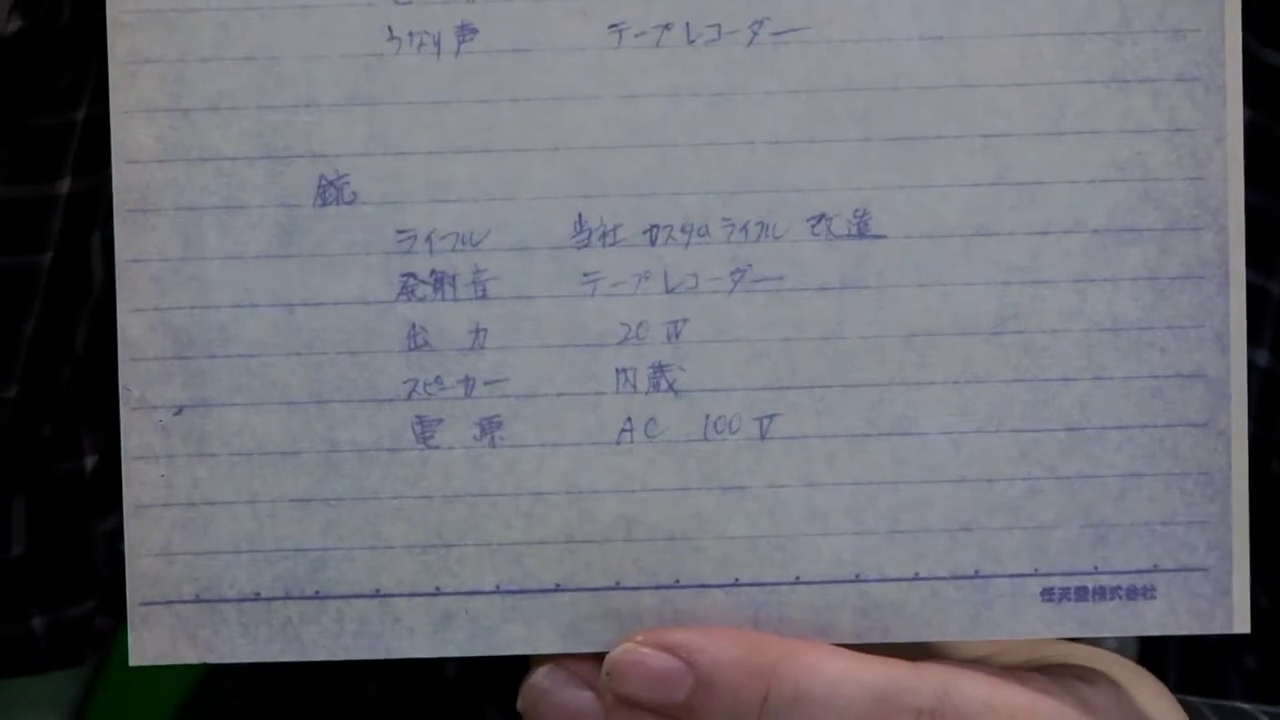 うなり声 テープレコーダー
銃
ライフル 当社 カスタムライフル 改造
発射音 テープレコーダー
出力 20 W
スピーカー 内蔵
電源 AC 100 V
任天堂株式会社